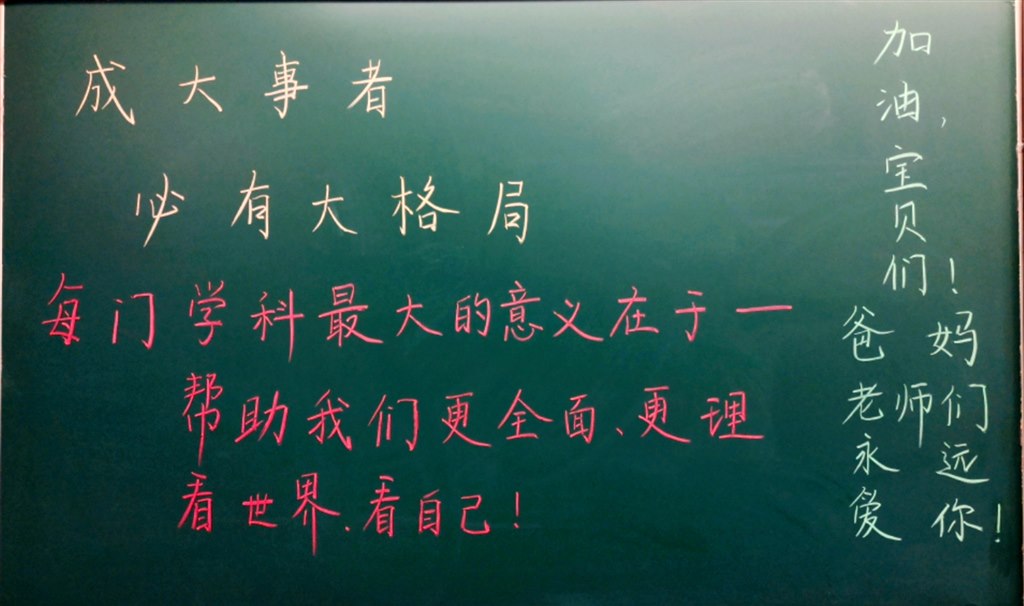 成大事者
必有大格局
每门学科最大的意义在于一
帮助我们更全面、更理
看世界、看自己！
加油，宝贝们！
爸妈
老师们
永远
爱你！